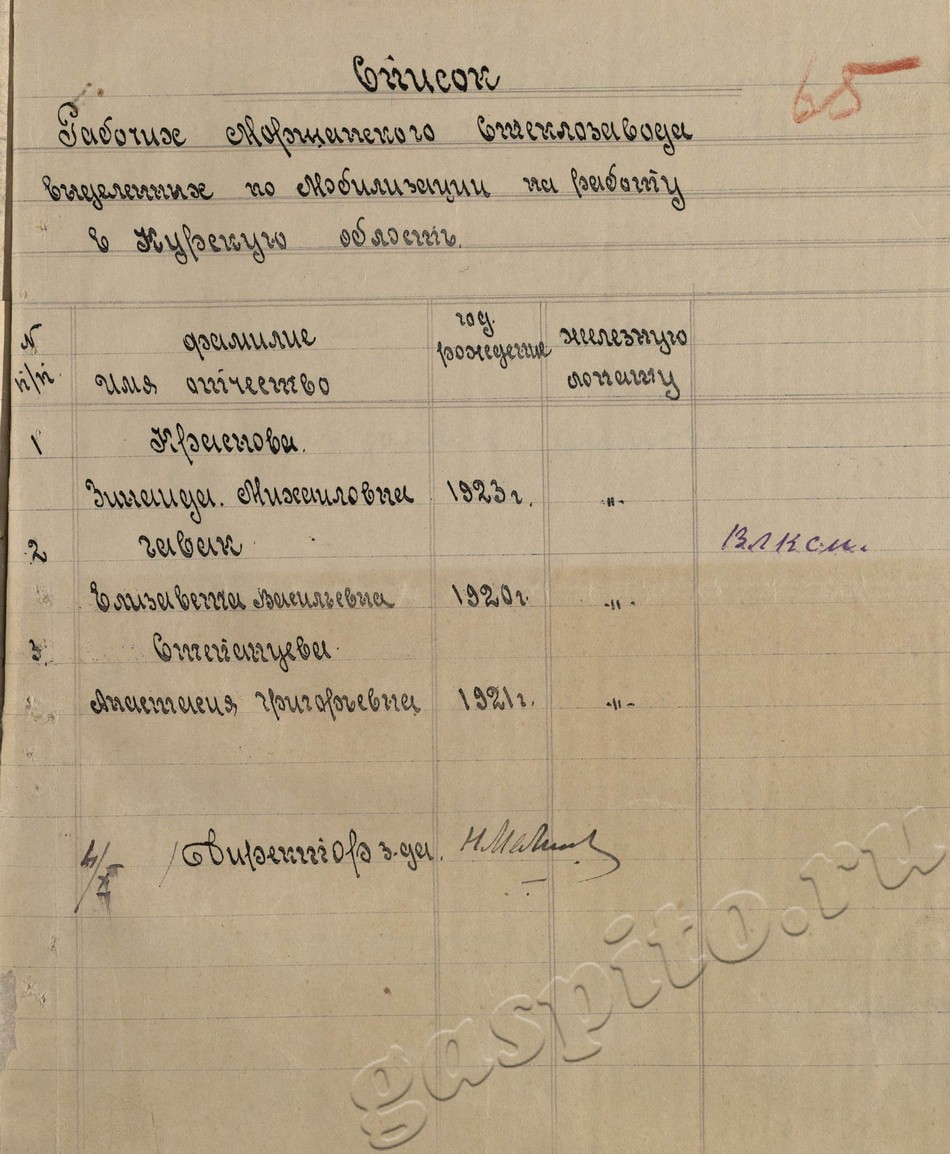 Список
65
Рабочих Моршанского Стеклозавода
выделенных по Мобилизации на работу
в Курскую область.
N п/п
фамилие имя отчество
год. рождение
железную лопату
1 Краснова.
Зинаида. Михаиловна 1923 г. -"-
2 гавак ВЛКСМ.
Елизавета Васильевна 1920 г. -"-
3. Степанцева.
Анастасия григорьевна 1921 г. -"-
/Директор з-да.
gaspito.ru